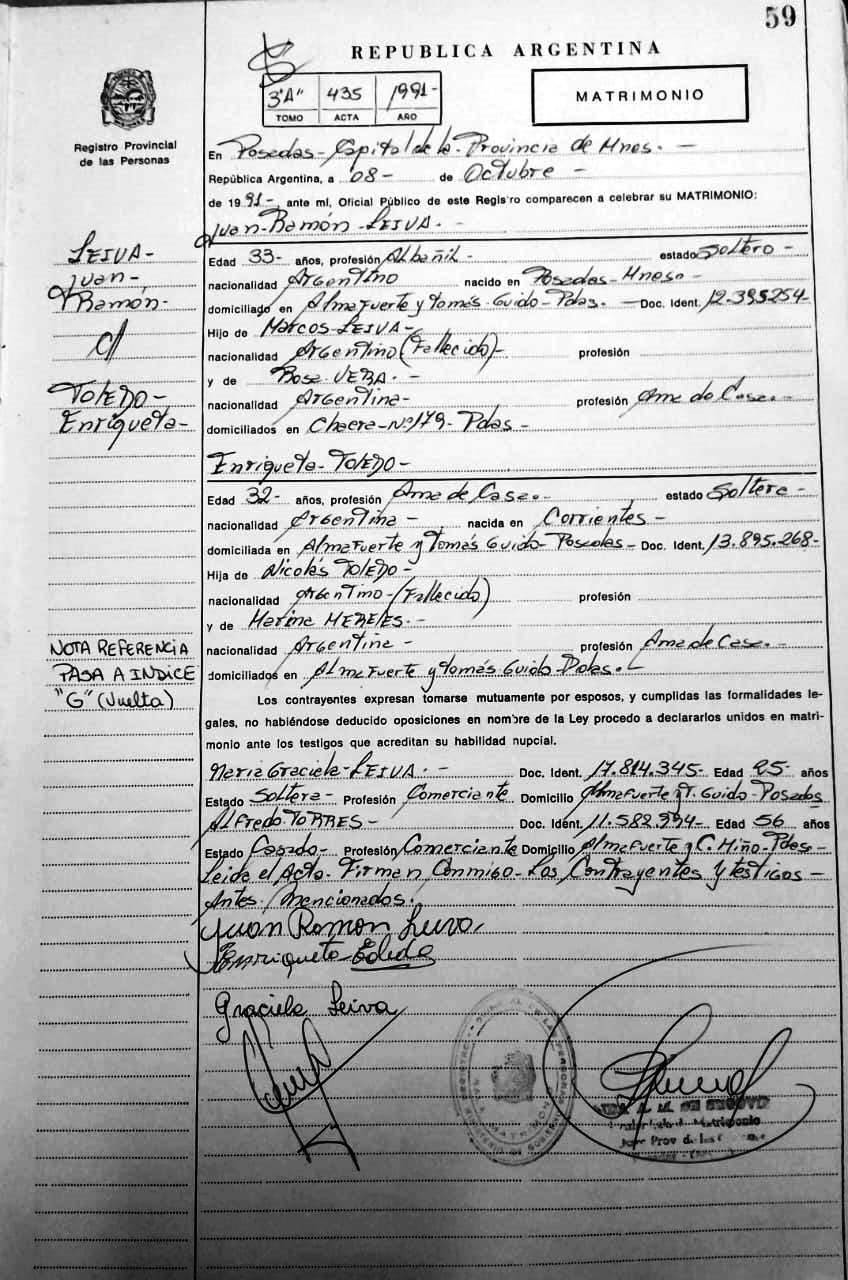 59
REPUBLICA ARGENTINA
3"A" 435 1991-
TOMO ACTA AÑO
MATRIMONIO
Registro Provincial
de las Personas
En Posadas-Capital de la Provincia de Mnes.-
República Argentina, a 08- de Octubre-
de 1991-, ante mí, Oficial Público de este Registro comparecen a celebrar su MATRIMONIO:
Juan-Ramón-LEIVA.-
LEIVA-
Juan-
Ramón-
c/
TOLEDO-
Enriqueta-
Edad 33- años, profesión Albañil- estado Soltero-
nacionalidad Argentino nacido en Posadas-Mnes-
domiciliado en Almafuerte y Tomás Guido-Pdas.- Doc. Ident. 12.395254-
Hijo de Marcos-LEIVA-
nacionalidad Argentino (Fallecido)- profesión
y de Rosa VERA.-
nacionalidad Argentina- profesión Ama de Casa.-
domiciliados en Chacra-Nº179-Pdas-
Enriqueta-TOLEDO-
Edad 32- años, profesión Ama de Casa.- estado Soltera-
nacionalidad Argentina- nacida en Corrientes-
domiciliada en Almafuerte y Tomás Guido-Posadas- Doc. Ident. 13.895.268-
Hija de Nicolás TOLEDO-
nacionalidad Argentino-(Fallecido) profesión
y de Marina MERELES.-
nacionalidad Argentina- profesión Ama de Casa.-
domiciliados en Almafuerte y Tomás Guido-Pdas.-
NOTA REFERENCIA
PASA A INDICE
"G" (Vuelta)
Los contrayentes expresan tomarse mutuamente por esposos, y cumplidas las formalidades le-
gales, no habiéndose deducido oposiciones en nombre de la Ley procedo a declararlos unidos en matri-
monio ante los testigos que acreditan su habilidad nupcial.
María Graciela-LEIVA.- Doc. Ident. 17.814.345- Edad 25- años
Estado Soltera- Profesión Comerciante Domicilio Almafuerte y T. Guido-Posadas
Alfredo TORRES- Doc. Ident. 11.582.994- Edad 56 años
Estado Casado- Profesión Comerciante Domicilio Almafuerte y C. Miño-Pdas-
Leída el Acta-Firman Conmigo-Los Contrayentes y testigos-
Antes/Mencionados.
Juan Ramon Leiva
Enriqueta Toledo
Graciela Leiva